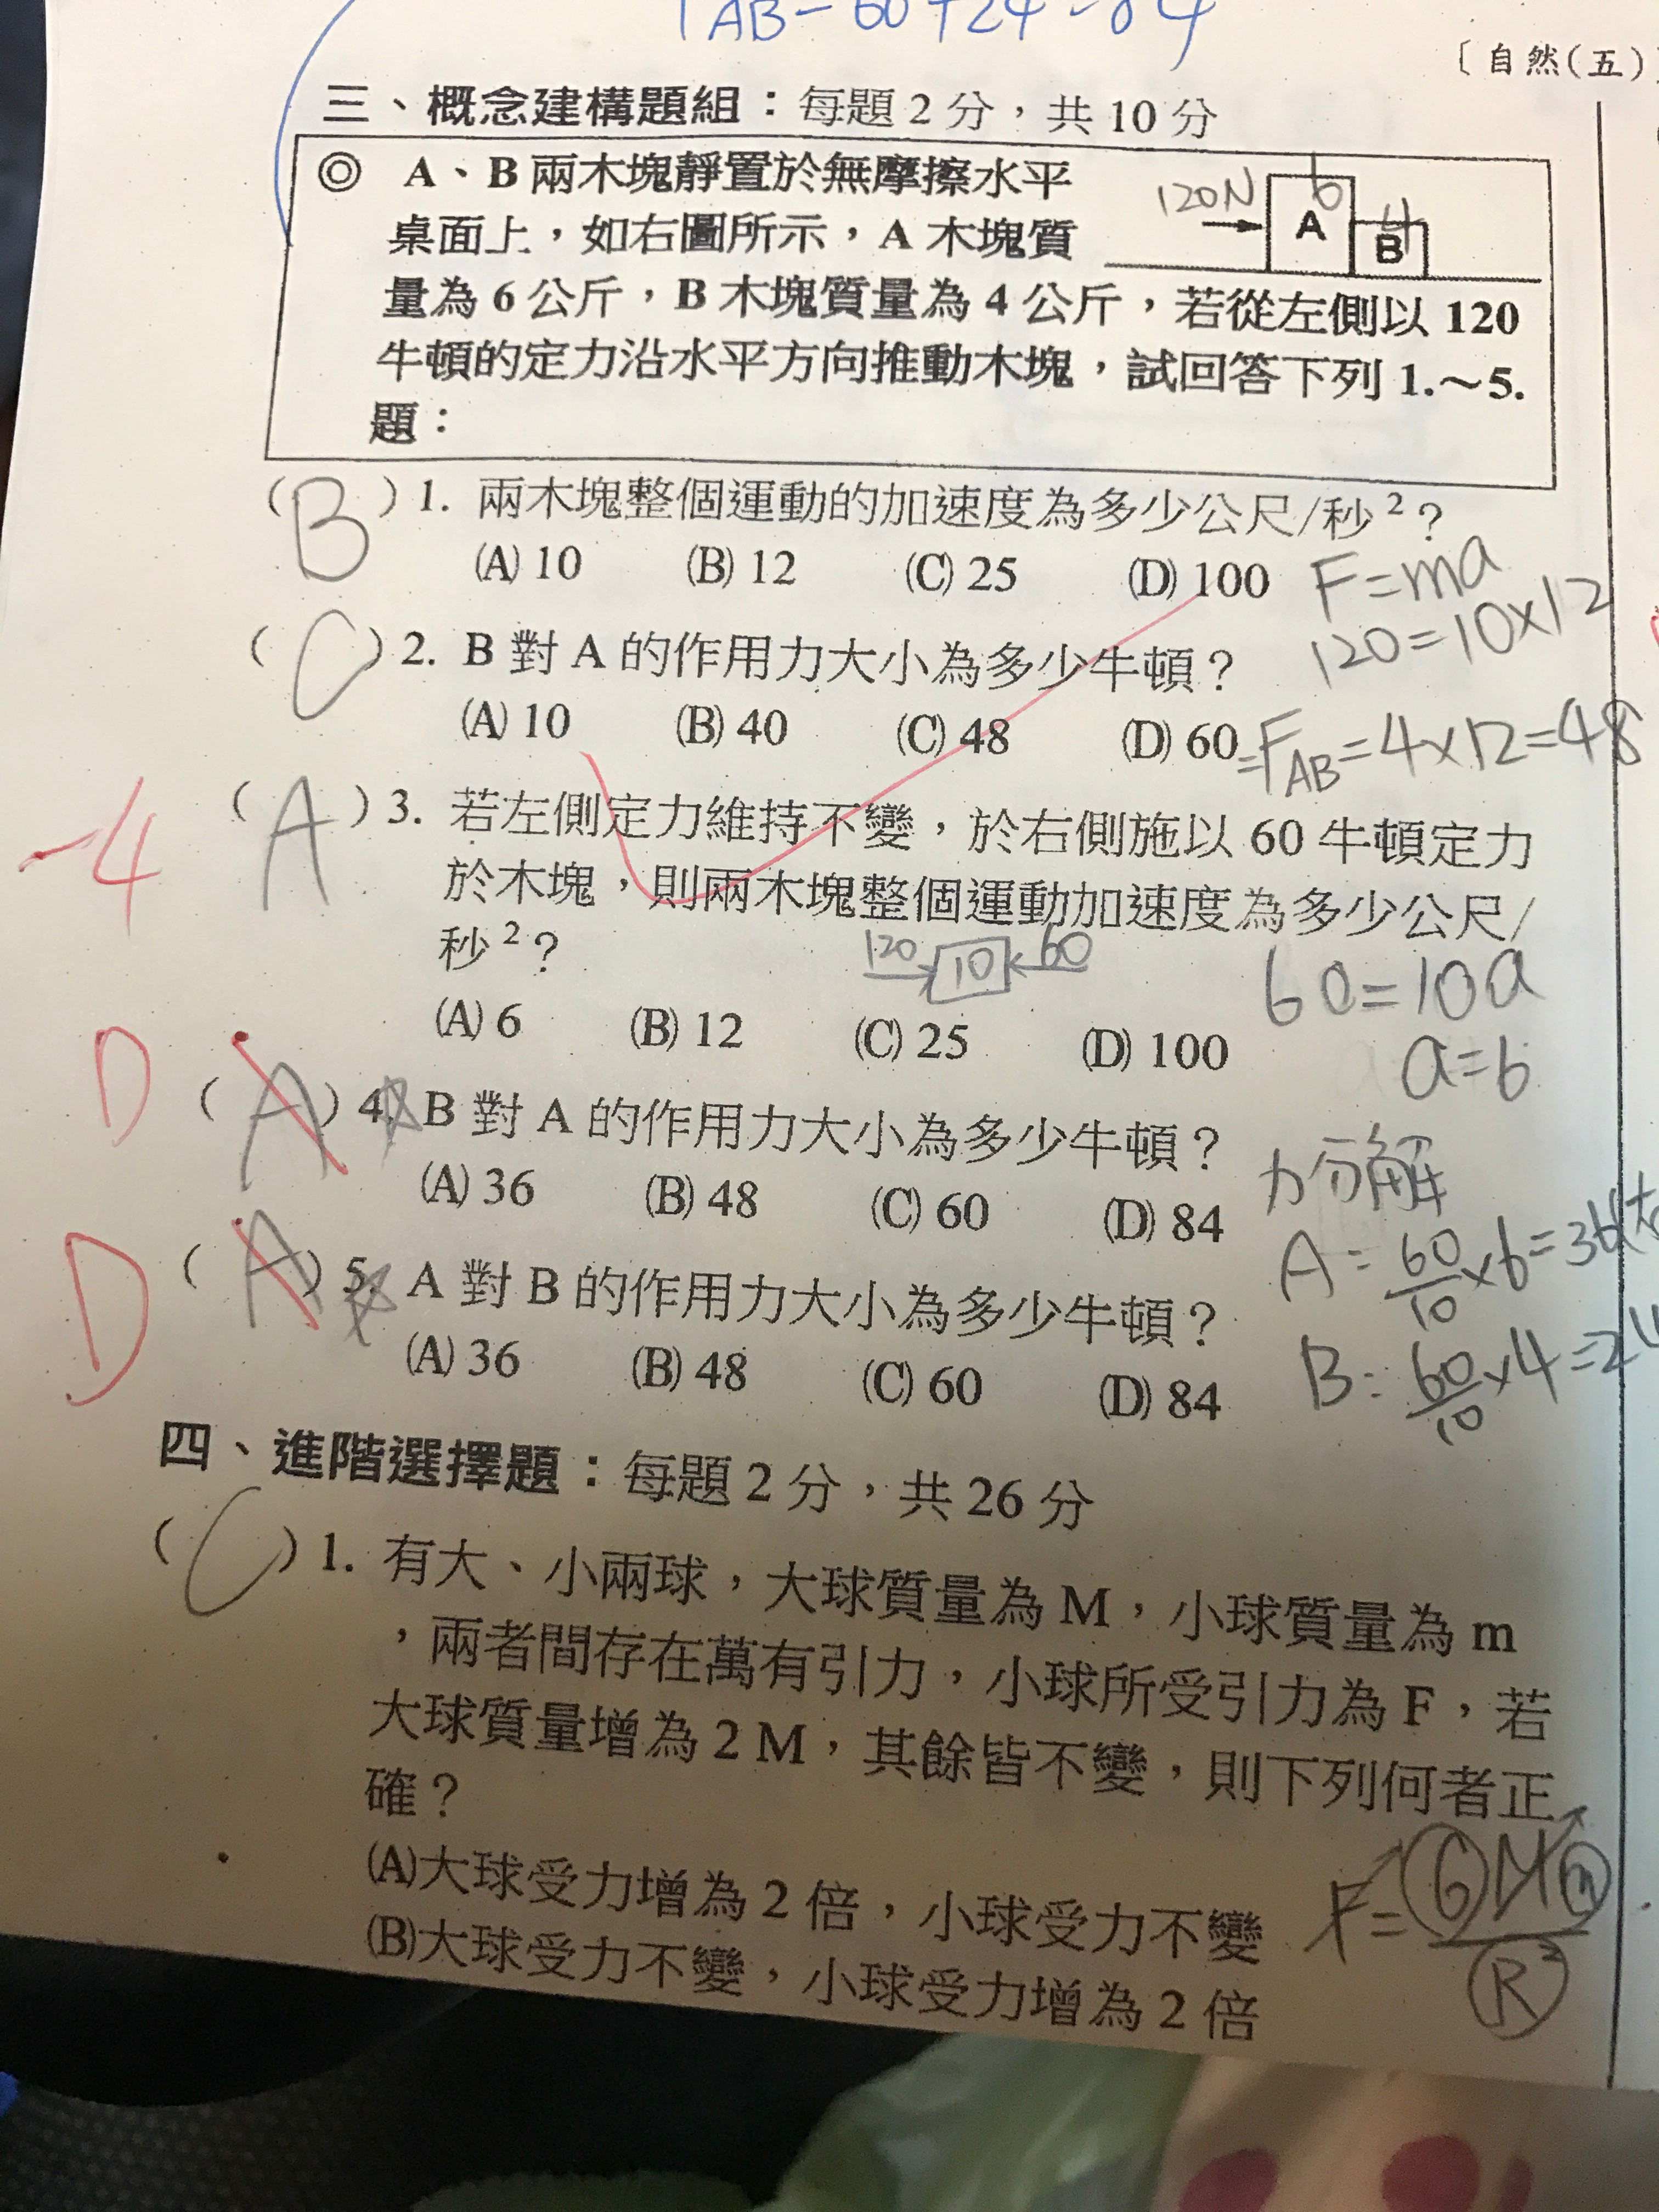 T AB = 60 + 24 = 84
〔自然(五)〕
三、概念建構題組：每題 2 分，共 10 分
◎ A、B 兩木塊靜置於無摩擦水平
桌面上，如右圖所示，A 木塊質
量為 6 公斤，B 木塊質量為 4 公斤，若從左側以 120
牛頓的定力沿水平方向推動木塊，試回答下列 1.～5.
題：
120N
6
A
4
B
( B ) 1. 兩木塊整個運動的加速度為多少公尺/秒²？
(A) 10 (B) 12 (C) 25 (D) 100
F=ma
120=10×12
( C ) 2. B 對 A 的作用力大小為多少牛頓？
(A) 10 (B) 40 (C) 48 (D) 60
=FAB=4×12=48
-4
( A ) 3. 若左側定力維持不變，於右側施以 60 牛頓定力
於木塊，則兩木塊整個運動加速度為多少公尺/
秒²？
120 10 60
(A) 6 (B) 12 (C) 25 (D) 100
60=10a
a=6
D ( A ) 4. B 對 A 的作用力大小為多少牛頓？
(A) 36 (B) 48 (C) 60 (D) 84
力分解
A = 60/10 ×6=36
D ( A ) 5. A 對 B 的作用力大小為多少牛頓？
(A) 36 (B) 48 (C) 60 (D) 84
B = 60/10 ×4=24
四、進階選擇題：每題 2 分，共 26 分
( C ) 1. 有大、小兩球，大球質量為 M，小球質量為 m
，兩者間存在萬有引力，小球所受引力為 F，若
大球質量增為 2 M，其餘皆不變，則下列何者正
確？
(A)大球受力增為 2 倍，小球受力不變
(B)大球受力不變，小球受力增為 2 倍
F=GMm/R²